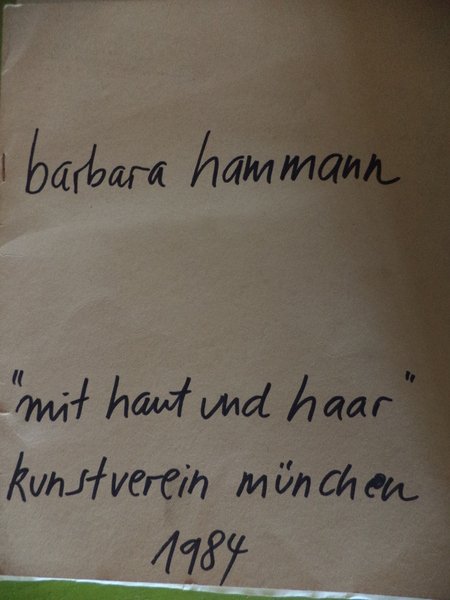 barbara hammann
"mit haut und haar"
kunstverein münchen
1984